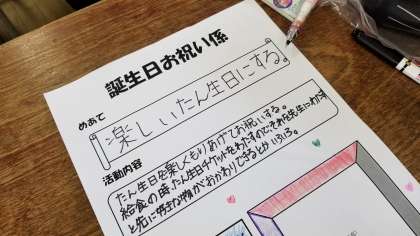 誕生日お祝い係
めあて
楽しいたん生日にする。
活動内容
たん生日を楽しくもりあげてお祝いする。
給食の時、たん生日チケットをわたすのでそれを先生にわたす
と先に好きな物がおかわりできるとかいろいろ。